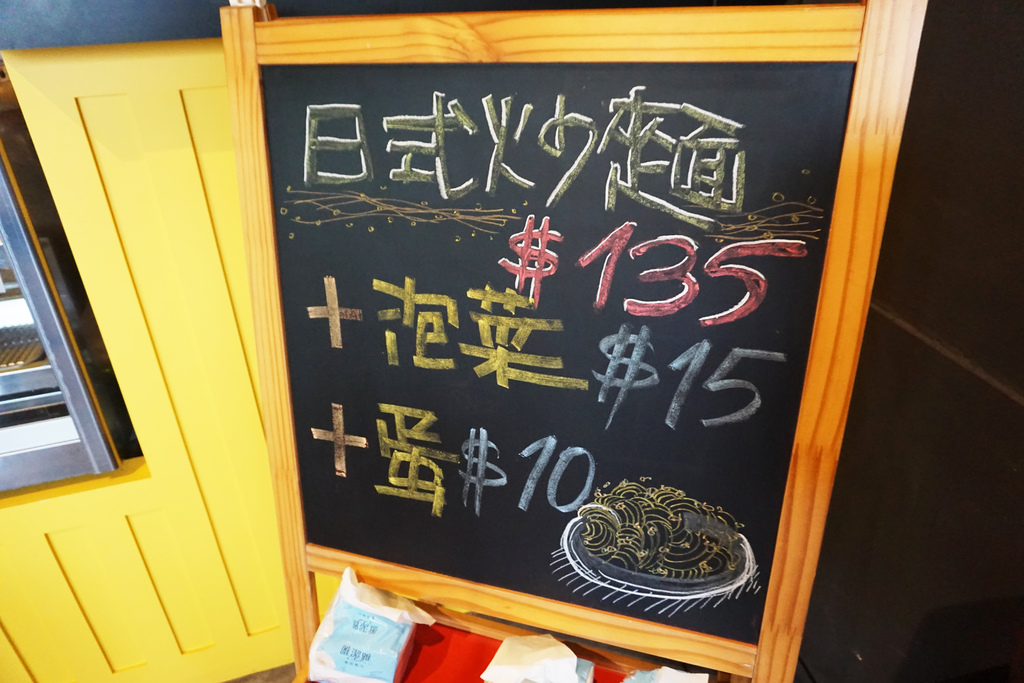 日式炒麵
$135
+泡菜 $15
+蛋 $10